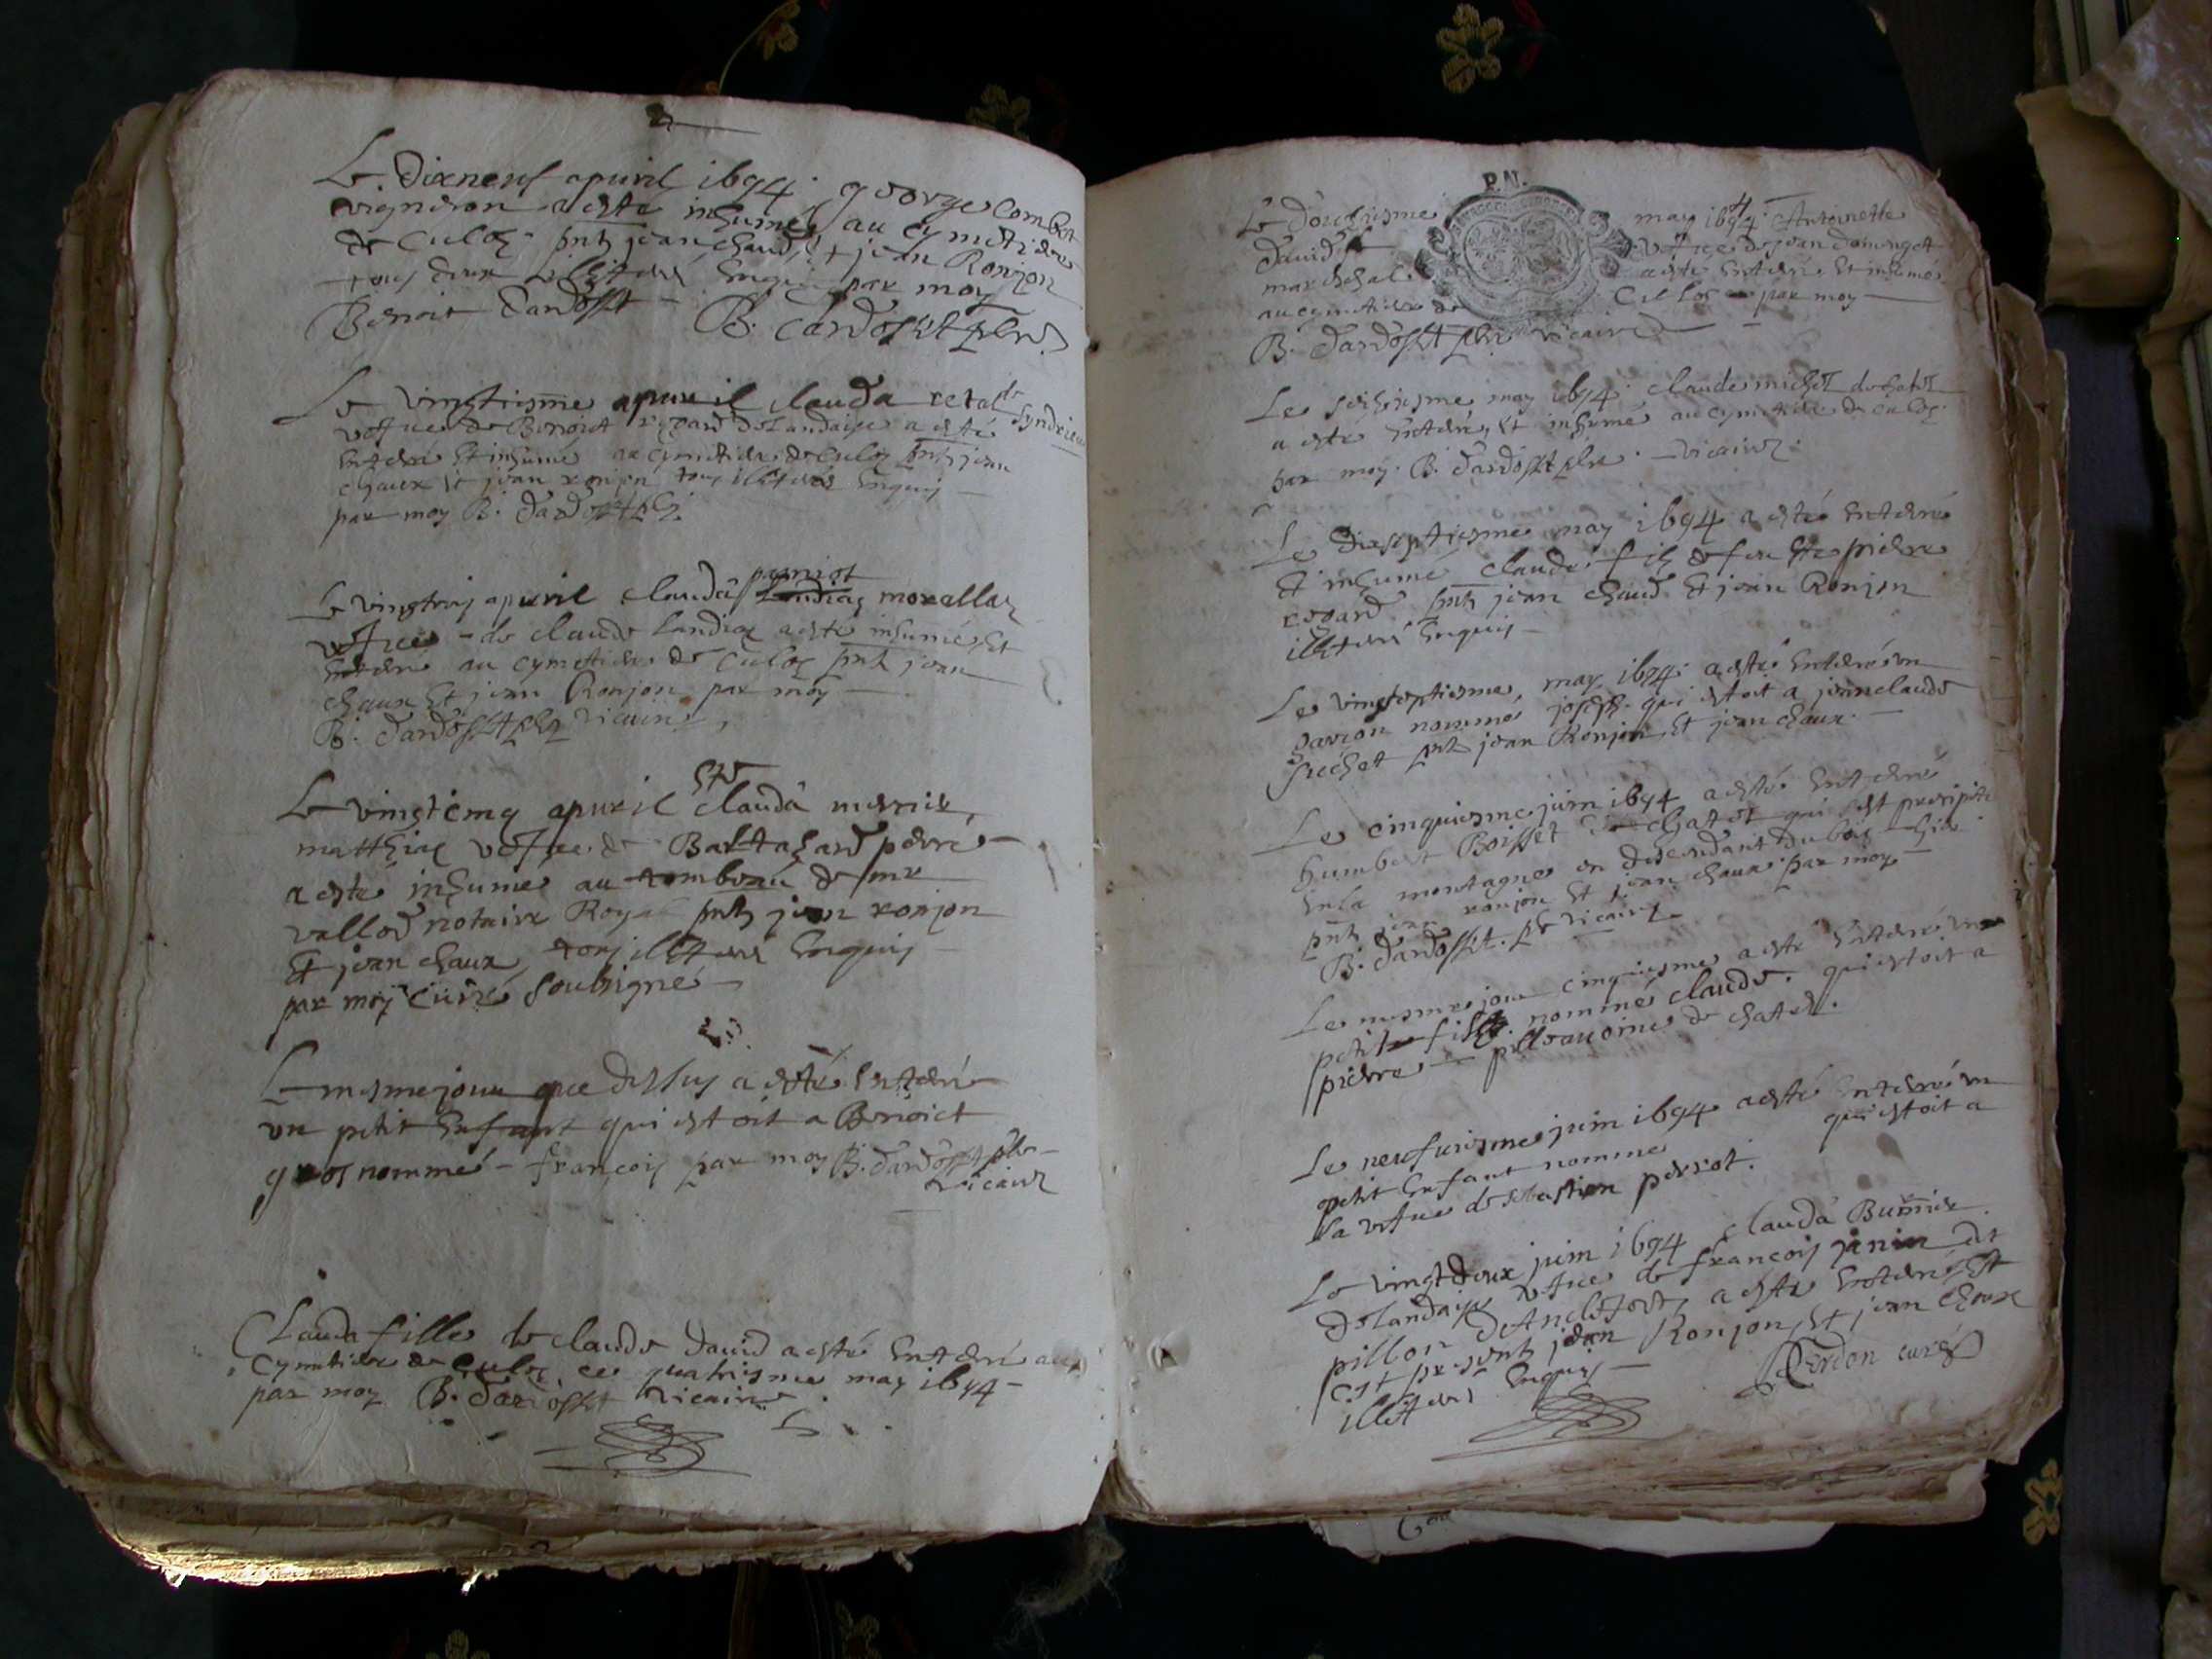 Le dixneuf apuril 1694 george Combet
vigneron a esté inhumé au cymetiere
de Culoz pnts jean chaud, et jean Ronjon
tous deux illiteres enquis par moy
Benoit Dardosset B. Dardosset pbre
Le vingtiesme apuril clauda
vefue de Benoist a esté
enterré et inhumé au cymetiere de Culoz pnts jean
chaux et jean ronjon tous illiteres enquis
par moy B. Dardosset
Le vingtrois apuril clauda pagniot morallaz
vefue de claude Landiaz a esté inhumé et
enterré au cymetiere de Culoz pnts jean
chaux et jean Ronjon par moy
B. Dardosset pbre vicaire
Le vingtcinq apuril hte clauda mercier
matthiaz vefue de Baltazard perre
a esté inhumé au tombeau de mr
vallod notaire Royal pnts jean ronjon
et jean chaux tous illiteres enquis
par moy curé soubsigné
Le mesme jour que dessus a esté enterré
un petit enfant qui estoit a Benoict
gros nommé françois par moy B. Dardosset pbre
vicaire
Clauda fille de claude david a esté enterré au
cymetiere de Culoz ce quatriesme may 1694
par moy B. Dardosset vicaire
P.N.
Le douziesme may 1694 Antoinette
david vefue de jean domenget
mareschal a esté enterré et inhumé
au cymetiere de Culoz par moy
B. Dardosset pbre vicaire
Le seiziesme may 1694 claude michel
a esté enterré, et inhumé au cymetiere de Culoz
par moy B. Dardosset pbre vicaire
Le dixseptiesme may 1694 a esté enterré
et inhumé claude fils de feu hte pierre
pnts jean chaud et jean Ronjon
illiteres enquis
Le vingtseptiesme may 1694 a esté enterré un
garcon nommé joseph qui estoit a jeanclaude
pnts jean Ronjon et jean chaux
Le cinquiesme juin 1694 a esté enterré
humbert Boisset de chatel qui s'est precipité
en la montagne en descendant du bois
pnts jean ronjon et jean chaux par moy
B. Dardosset pbre vicaire
Le mesme jour cinquiesme a esté enterré une
petite fille nommé claude qui estoit a
pierre pilleauoine de chatel
Le neufuiesme juin 1694 a esté enterré un
petit enfant nommé qui estoit a
la vefue de sebastien perrot
Le vingtdeux juin 1694 clauda Burnier
vefue de françois janin dit
pillon a esté enterré et
presents jean Ronjon et jean chaux
illiteres enquis Cerdon curé